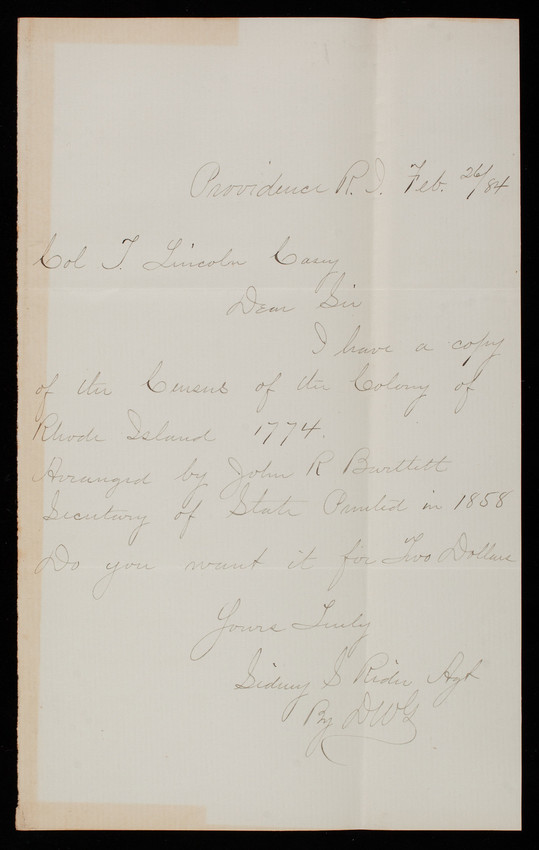 Providence R. I. Feb. 26/84
Col T. Lincoln Casey
Dear Sir
I have a copy
of the Census of the Colony of
Rhode Island 1774.
Arranged by John R Bartlett
Secretary of State Printed in 1858
Do you want it for Two Dollars
Yours Truly
Sidney S Rider Agt
By DWG